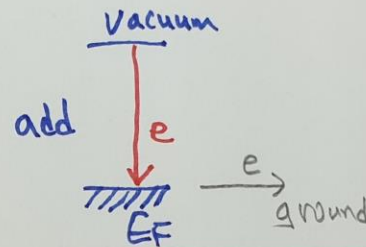 Vacuum
add
e
e
ground
EF